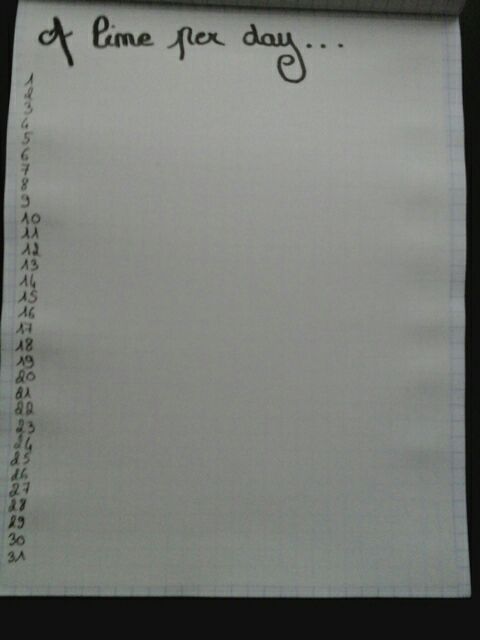 A line per day...
1
2
3
4
5
6
7
8
9
10
11
12
13
14
15
16
17
18
19
20
21
22
23
24
25
26
27
28
29
30
31